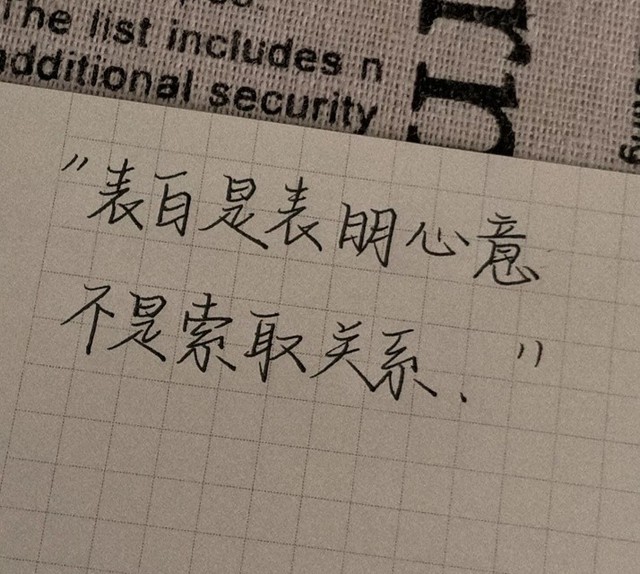 The list includes n
additional security
rr
"表白是表明心意
不是索取关系."